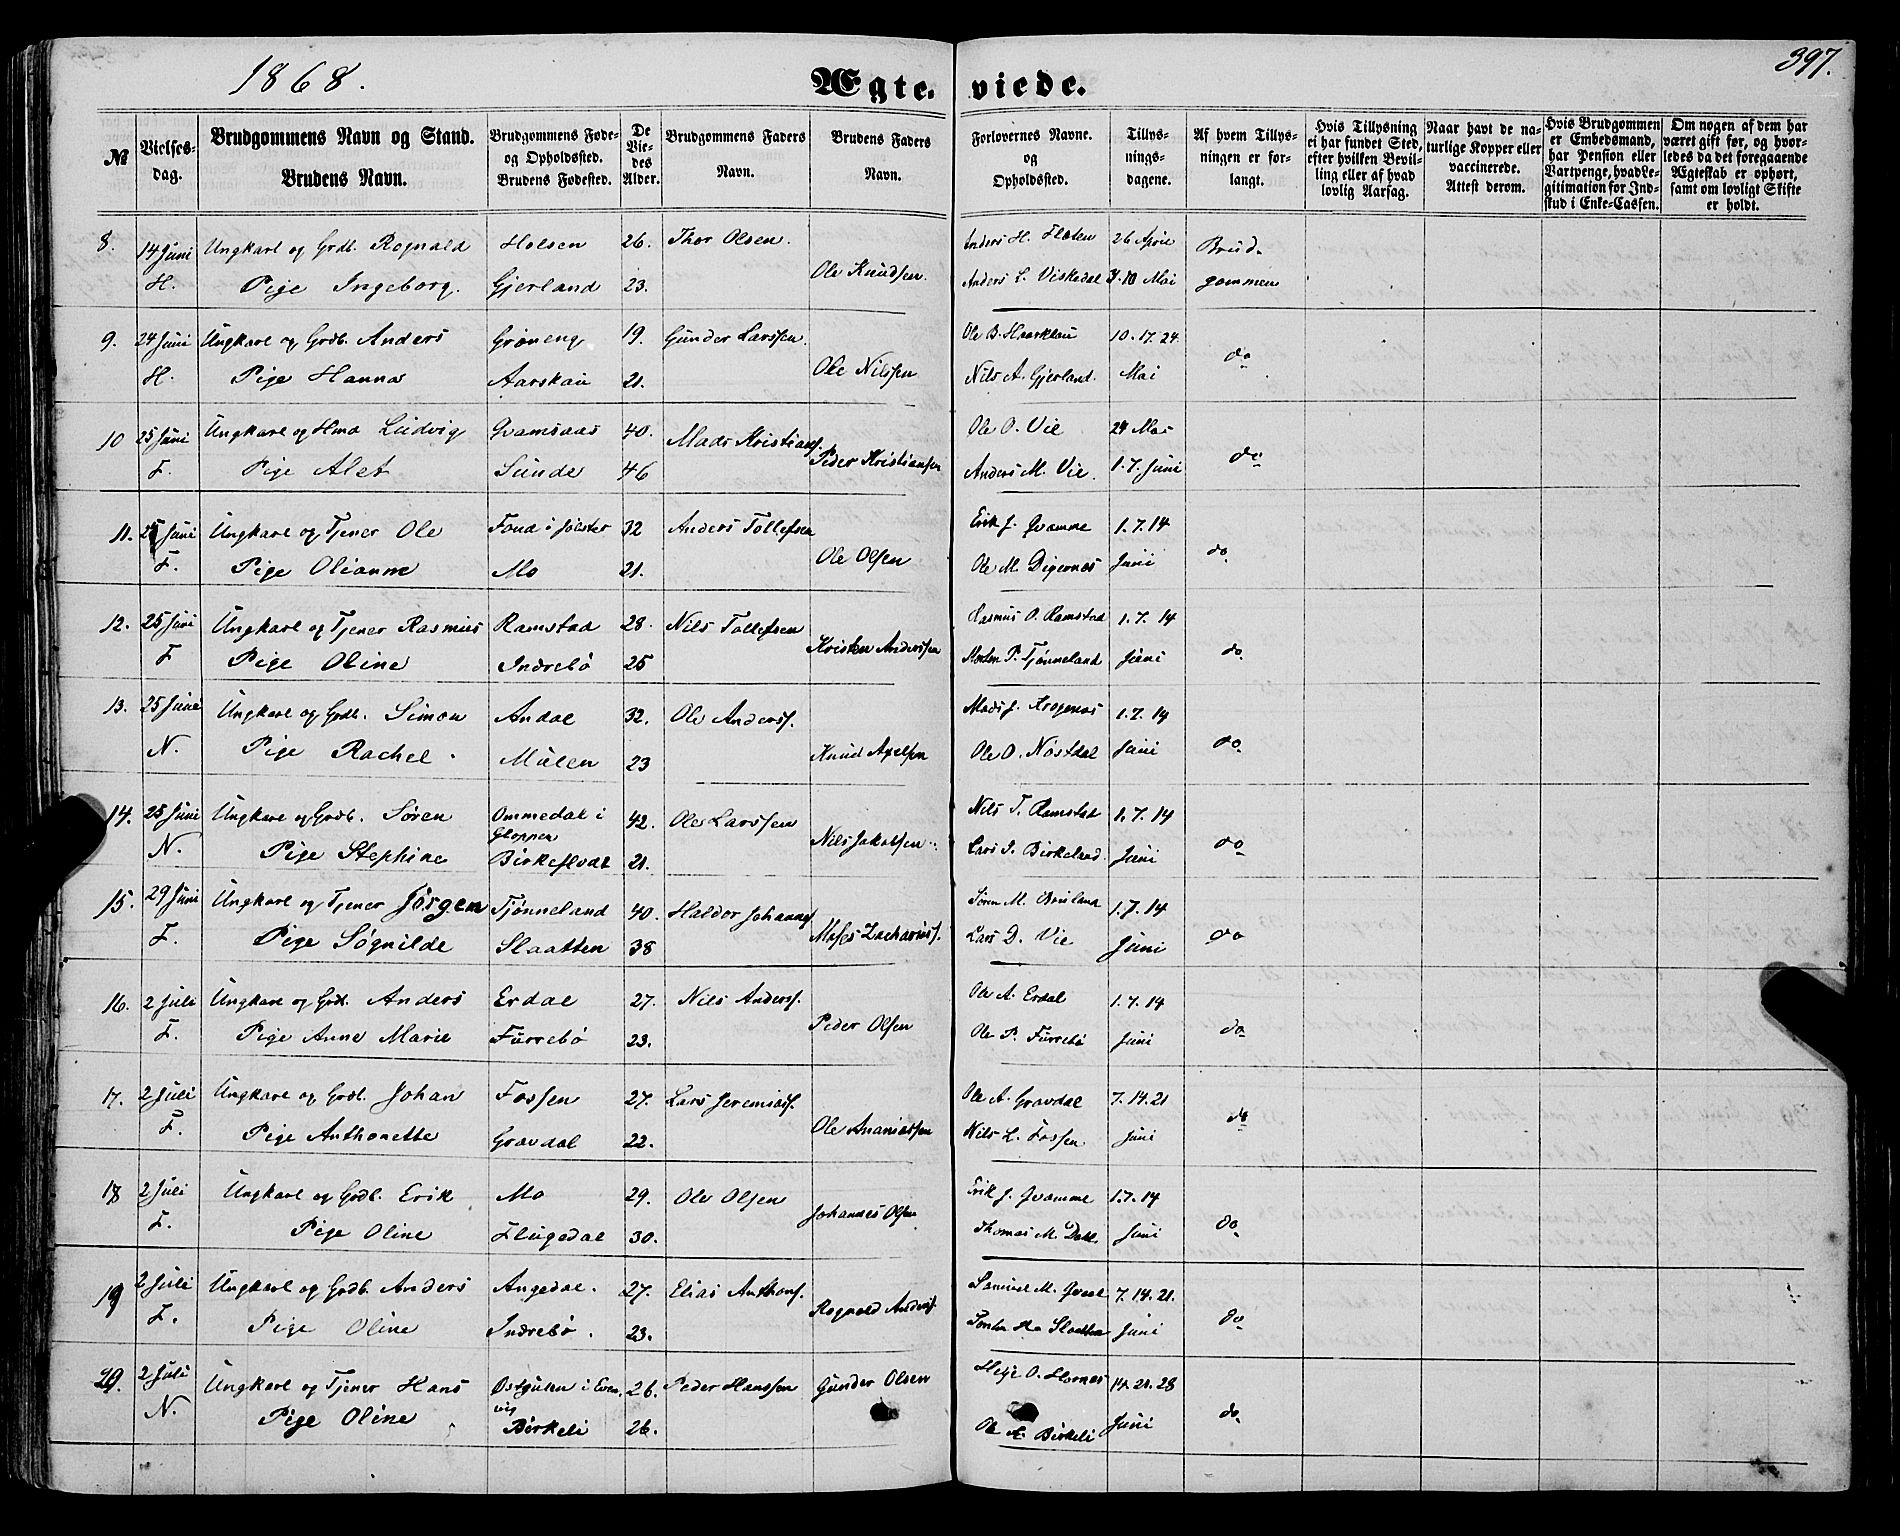 1868.
Ægte. viede.
397.
№
Vielses-dag.
Brudgommens Navn og Stand.
Brudens Navn.
Brudgommens Føde- og Opholdssted.
Brudens Fødested.
De Viedes Alder.
Brudgommens Faders Navn.
Brudens Faders Navn.
Forlovernes Navne. og Opholdssted.
Tillysningsdagene.
Af hvem Tillysningen er forlangt.
Hvis Tillysning ei har fundet Sted, efter hvilken Bevilling eller af hvad lovlig Aarsag.
Naar havt de naturlige Kopper eller vaccinerede. Attest derom.
Hvis Brudgommen er Embedsmand, har Pension eller Vartpenge, hvad Legitimation for Indskud i Enke-Cassen.
Om nogen af dem har været gift før, og hvorledes da det foregaaende Ægteskab er ophørt, samt om lovligt Skifte er holdt.
8. 14 Juni Ungkarl og Grdb. Rognald Holsen 26. Thor Olsen. Anders H. Flaten 26 April Brud-
H. Pige Ingeborg. Gjerland 23. Ole Knudsen. Anders L. Viskedal 3. 10 Mai gommen
9. 24 Juni Ungkarl og Grdb. Anders Grøneng 19. Gunder Larssen. Ole B. Haarklau 10. 17. 24.
H. Pige Hanna Aarskau 21. Ole Nilssen Nils A. Gjerland. Mai do
10 25 Juni Ungkarl og Hmd Ludvig Qvamsaas 40. Mads Kristians. Ole O. Vie 24 Mai
F. Pige Alet Sunde 46 Peder Kristiansen Anders M. Vie. 1. 7. Juni do
11. 25 Juni Ungkarl og Tjener Ole Fond i Jølster 32 Anders Tollefsen Erik J. Qvamme 1. 7. 14
F. Pige Olianne Mo 21. Ole Olsen Ole M. Digernes Juni do
12. 25 Juni Ungkarl og Tjener Rasmus Ramstad 28. Nils Tollefsen Rasmus O. Ramstad 1. 7. 14
F Pige Oline Indrebø 25 Kristen Anderssen Morten P. Tjønneland Juni do
13. 25 Juni Ungkarl og Grdb. Simon Andal 32. Ole Anderss. Mads J. Krogenæs 1. 7. 14
N. Pige Rachel. Mulen 23 Knud Axelsen Ole O. Nøstdal Juni do
14. 25 Juni Ungkarl og Grdb. Søren Ommedal i Gloppen 42. Ole Larssen Nils T. Ramstad 1. 7. 14
N. Pige Stephine Birkeflødt 21. Nils Jakobsen Lars I. Birkeland. Juni do
15. 29 Juni Ungkarl og Tjener Jørgen Tjønneland 40. Haldor Johanns. Søren M. Bruland 1. 7. 14
F. Pige Søgnilde Slaatten 38 Moses Zacharias. Lars D. Vie Juni do
16. 2 Juli Ungkarl og Grdb. Anders Erdal 27. Nils Anderss. Ole A. Erdal 1. 7. 14
F. Pige Anne Marie Furrebø 23. Peder Olsen Ole P. Furrebø Juni do
17. 2 Juli Ungkarl og Grdb. Johan Fossen 27. Lars Jeremiass. Ole A. Gravdal 7. 14. 21
F. Pige Anthonette Gravdal 22. Ole Ananiassen Nils L. Fossen Juni do
18 2 Juli Ungkarl og Grdb. Erik Mo 29. Ole Olsen Erik J. Qvamme 1. 7. 14
F. Pige Oline Flugedal 30. Johannes Olsen Thomas M. Dahl. Juni do
19 2 Juli Ungkarl og Grdb. Anders Angedal. 27. Elias Anthons. Samuel M. Qvaal 7. 14. 21.
F. Pige Oline Indrebø. 23. Rognald Anders. Slaatten Juni do
20. 2 Juli Ungkarl og Tjener Hans Østgulen i Evenvig 26. Peder Hanssen Gunder Olsen Helje O. Hornæs 14. 21. 28
N. Pige Oline Birkeli 26. Ole A. Birkeli Juni do